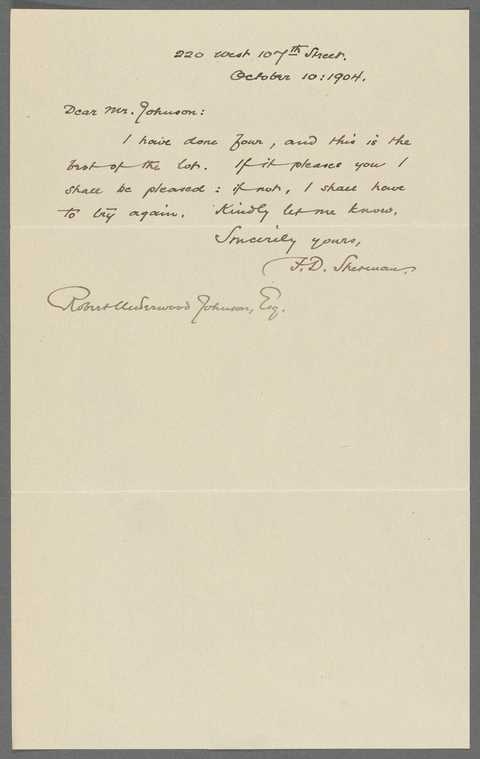 220 West 107th Street.
October 10: 1904.
Dear Mr. Johnson:
I have done four, and this is the
best of the lot. If it pleases you I
shall be pleased: if not, I shall have
to try again. Kindly let me know.
Sincerely yours,
F. D. Sherman.
Robert Underwood Johnson, Esq.